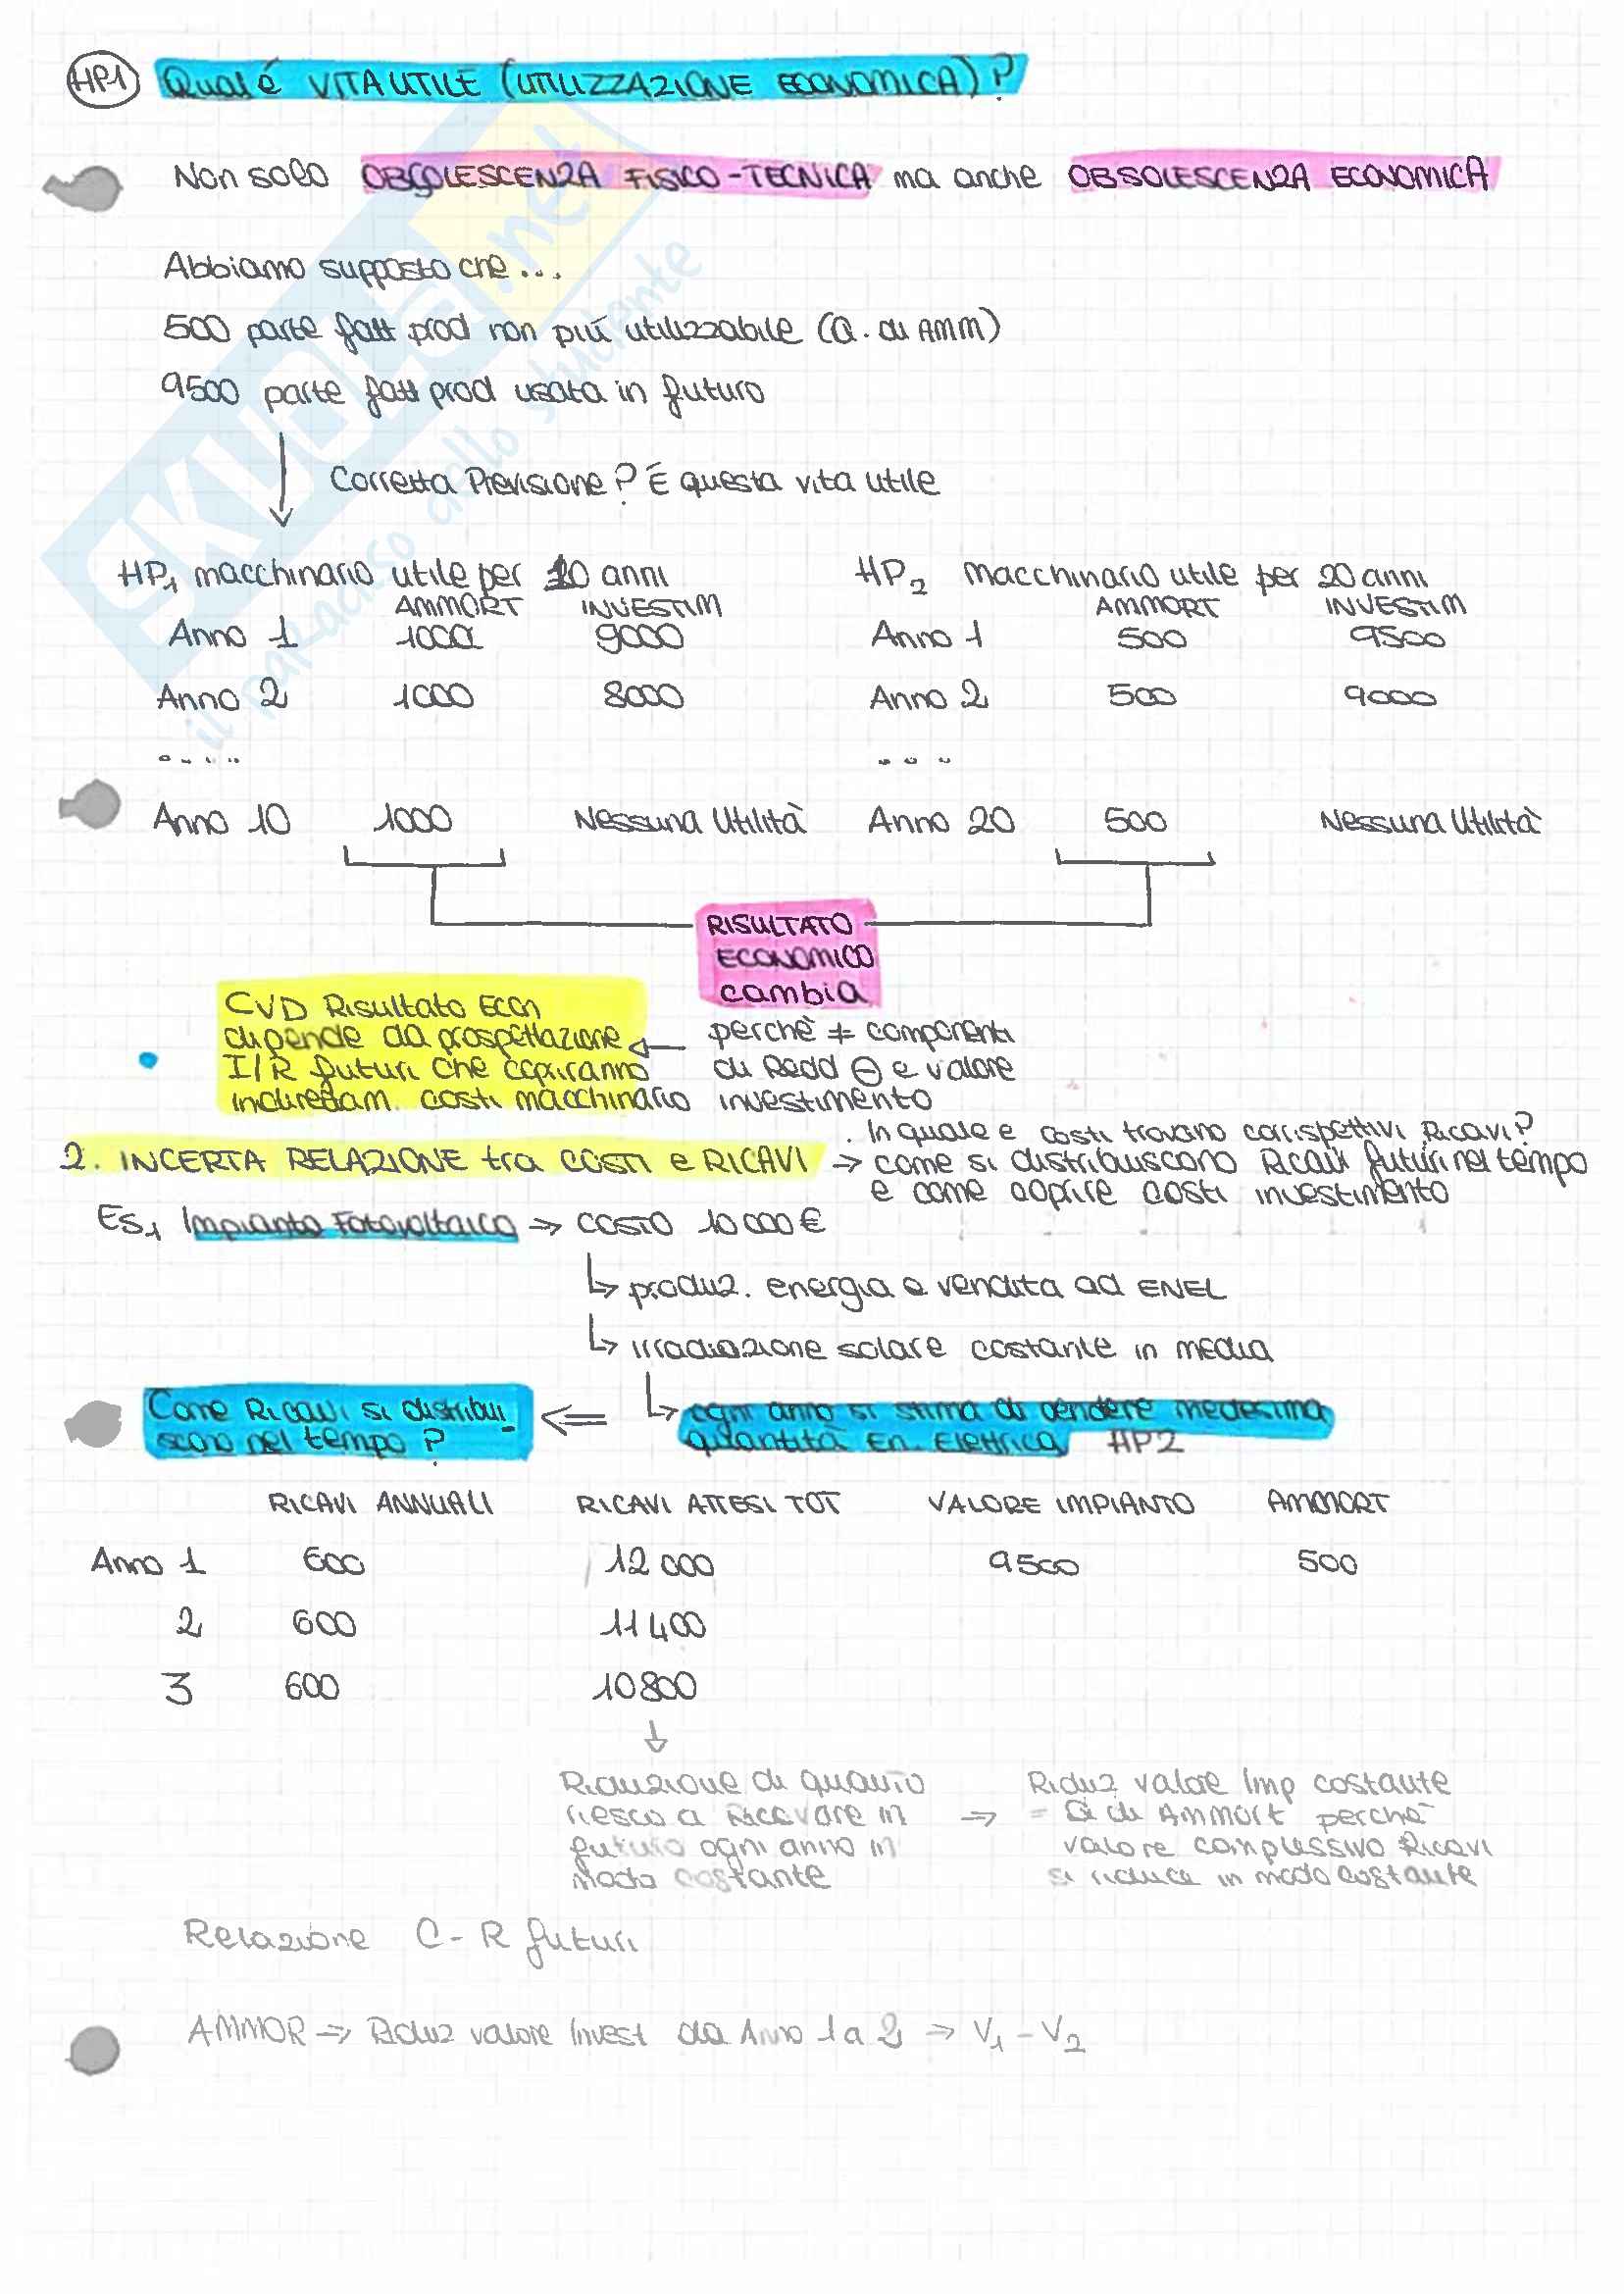 HP1 Qual é VITA UTILE (UTILIZZAZIONE ECONOMICA)?
Non solo OBSOLESCENZA FISICO-TECNICA ma anche OBSOLESCENZA ECONOMICA
Abbiamo supposto che...
500 parte fatt prod non più utilizzabile (Q. di AMM)
9500 parte fatt prod usata in futuro
Corretta Previsione? É questa vita utile
HP1 macchinario utile per 10 anni
AMMORT INVESTIM
Anno 1 1000 9000
Anno 2 1000 8000
....
Anno 10 1000 Nessuna Utilità
HP2 macchinario utile per 20 anni
AMMORT INVESTIM
Anno 1 500 9500
Anno 2 500 9000
...
Anno 20 500 Nessuna Utilità
RISULTATO
ECONOMICO
cambia
perchè ≠ componenti
di Redd ⊖ e valore
investimento
CVD Risultato Econ
dipende da prospettazione
I/R futuri che copriranno
indirettam. costi macchinario
2. INCERTA RELAZIONE tra COSTI e RICAVI →
. In quale e costi trovano corrispettivi Ricavi?
come si distribuiscono Ricavi futuri nel tempo
e come coprire costi investimento
ES1 Impianto Fotovoltaico → COSTO 10 000 €
↳ produz. energia e vendita ad ENEL
↳ irradiazione solare costante in media
↳ ogni anno si stima di vendere medesima
quantità En. Elettrica HP2
⇐ Come Ricavi si distribui
scono nel tempo?
RICAVI ANNUALI RICAVI ATTESI TOT VALORE IMPIANTO AMMORT
Anno 1 600 12 000 9500 500
2 600 11 400
3 600 10 800
↓
Riduzione di quanto
riesco a ricavare in
futuro ogni anno in
modo costante
→ Riduz valore Imp costante
= Q di Ammort perchè
valore complessivo Ricavi
si riduce in modo costante
Relazione C - R futuri
AMMOR → Riduz valore Invest da Anno 1 a 2 → V1 - V2
SKUOLA.net
il paradiso dello studente